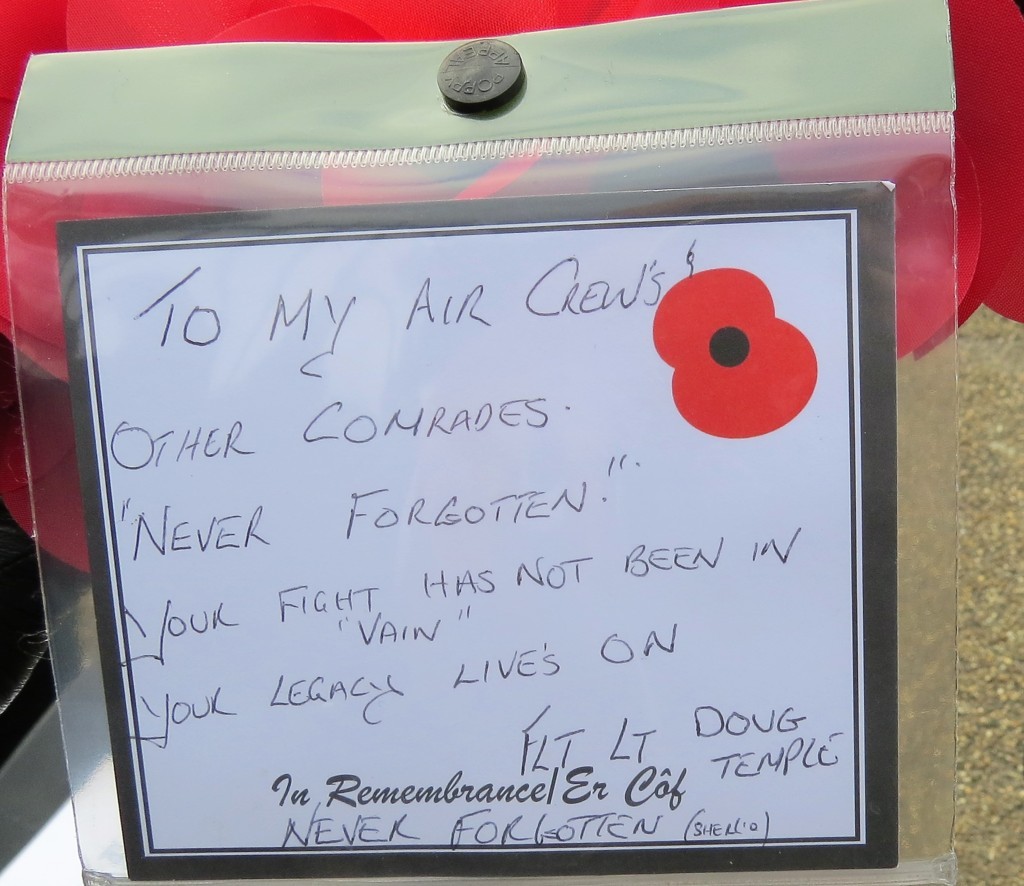 POPPY APPEAL
TO MY AIR CREW'S &
OTHER COMRADES.
"NEVER FORGOTTEN."
YOUR FIGHT HAS NOT BEEN IN
"VAIN"
YOUR LEGACY LIVE'S ON
FLT LT DOUG
TEMPLE
In Remembrance/Er Côf
NEVER FORGOTTEN